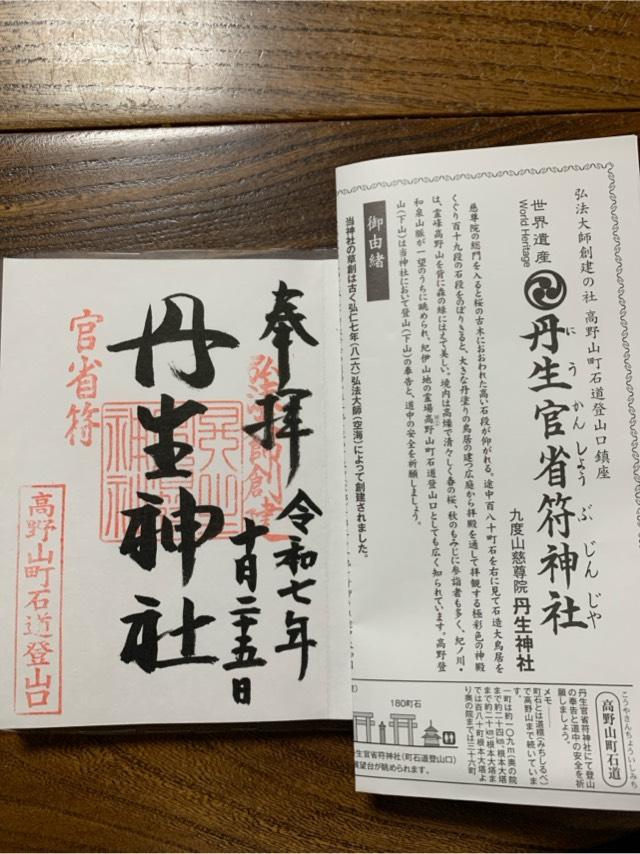 奉拝
令和七年
十月二十五日
丹生神社
官省符
高野山町石道登山口
弘法大師創建の社 高野山町石道登山口鎮座
世界遺産
World Heritage
丹生官省符神社
にうかんしょうぶじんじゃ
九度山慈尊院 丹生神社
慈尊院の総門を入ると桜の古木におおわれた高い石段が仰がれる。途中百八十町石を右に見て石造大鳥居を
くぐり百十九段の石段をのぼりきると、大きな丹塗りの鳥居の建つ広庭から拝殿を通して拝観する極彩色の神殿
は、霊峰高野山を背に森の緑にはえて美しい。境内は高燥で清々しく春の桜、秋のもみじに参詣者も多く、紀ノ川・
和泉山脈が一望のうちに眺められ、紀伊山地の霊場高野山町石道登山口としても広く知られています。高野登
山(下山)は当神社において登山(下山)の奉告と、道中の安全を祈願しましょう。
御由緒
当神社の草創は古く弘仁七年(八一六)弘法大師(空海)によって創建されました。
こうやさんちょういしみち
高野山町石道
丹生官省符神社にて登山
の奉告と道中の安全を祈
願しましょう。
メモ
町石とは道標(みちしるべ)
で高野山まで続いていま
す。
一町は約一〇九m(奥の院
まで約二十四km、根本大塔
まで約二十km)根本大塔ま
では百八十町根本大塔よ
り奥の院までは三十六町
180町石
生官省符神社(町石道登山口)
展望台が眺められます。